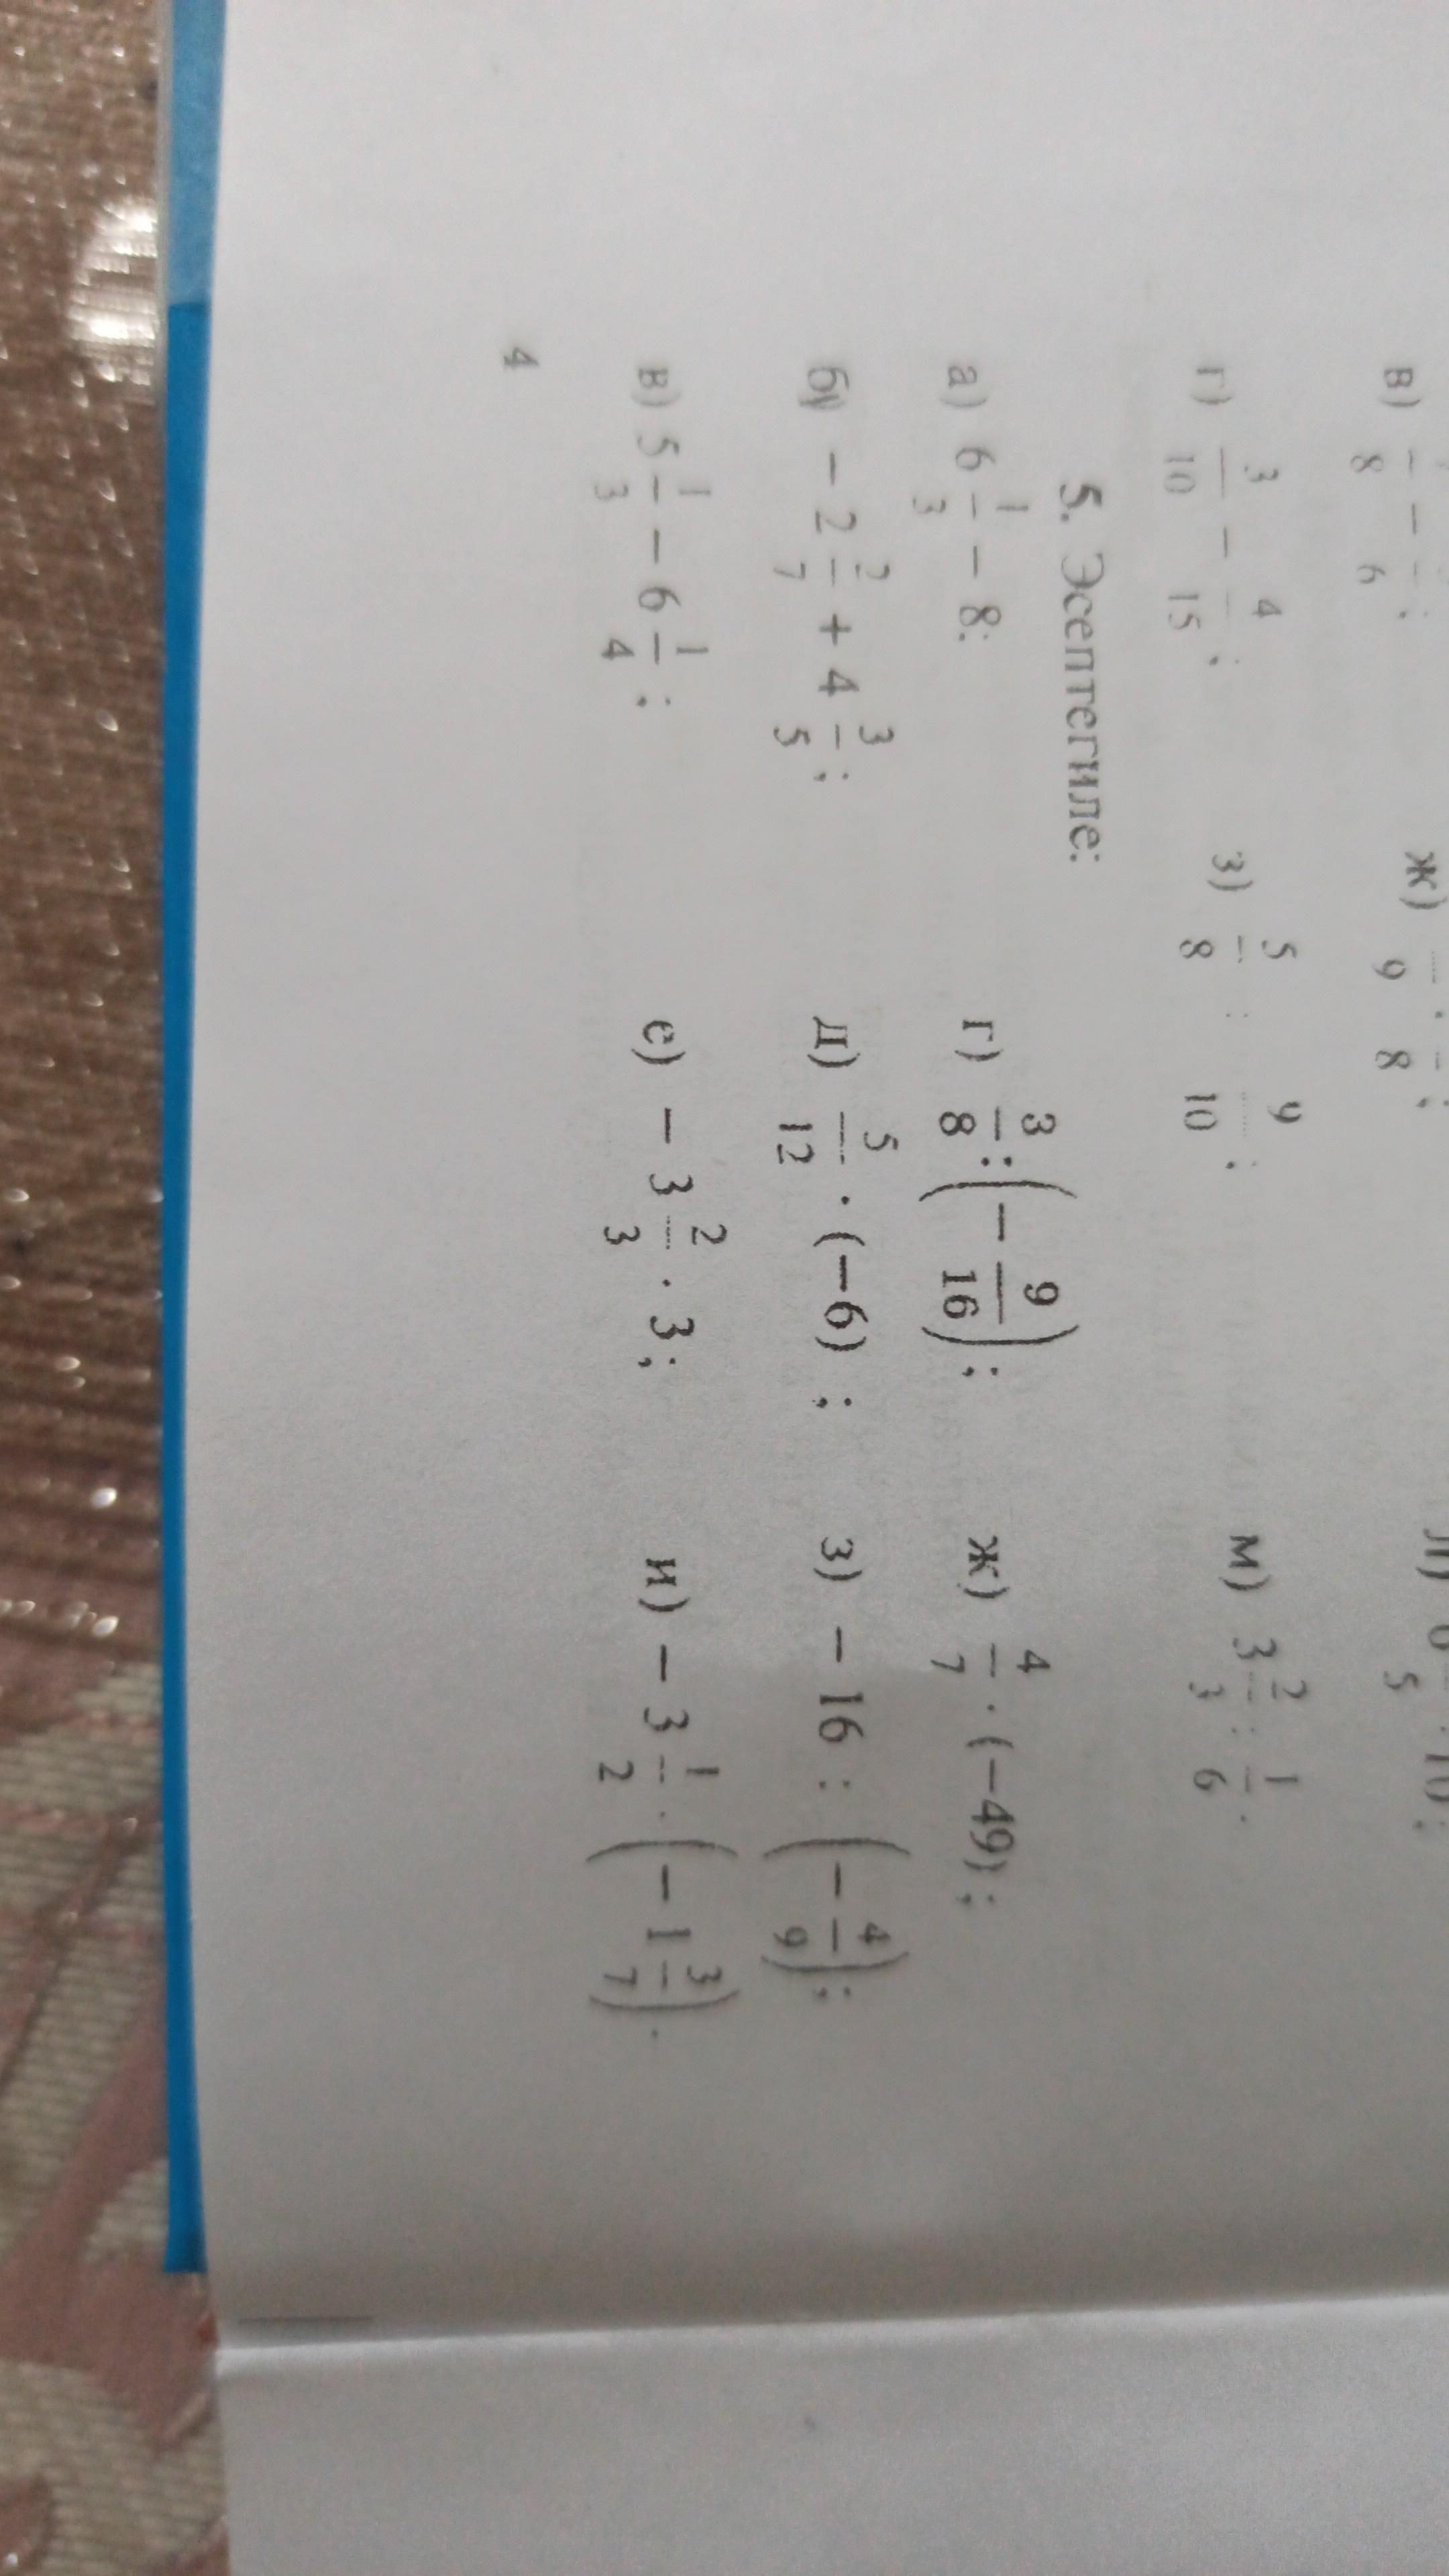 в) —/8 − —/6 ; ж) —/9 · —/8 ; л) 6 —/5 · 10 ;
г) 3/10 − 4/15 ; з) 5/8 : 9/10 ; м) 3 2/3 : 1/6 .
5. Эсептегиле:
а) 6 1/3 − 8; г) 3/8 : ( − 9/16 ) ; ж) 4/7 · (−49) ;
б) − 2 2/7 + 4 3/5 ; д) 5/12 · (−6) ; з) − 16 : ( − 4/9 ) ;
в) 5 1/3 − 6 1/4 ; е) − 3 2/3 · 3 ; и) − 3 1/2 · ( − 1 3/7 ) .
4